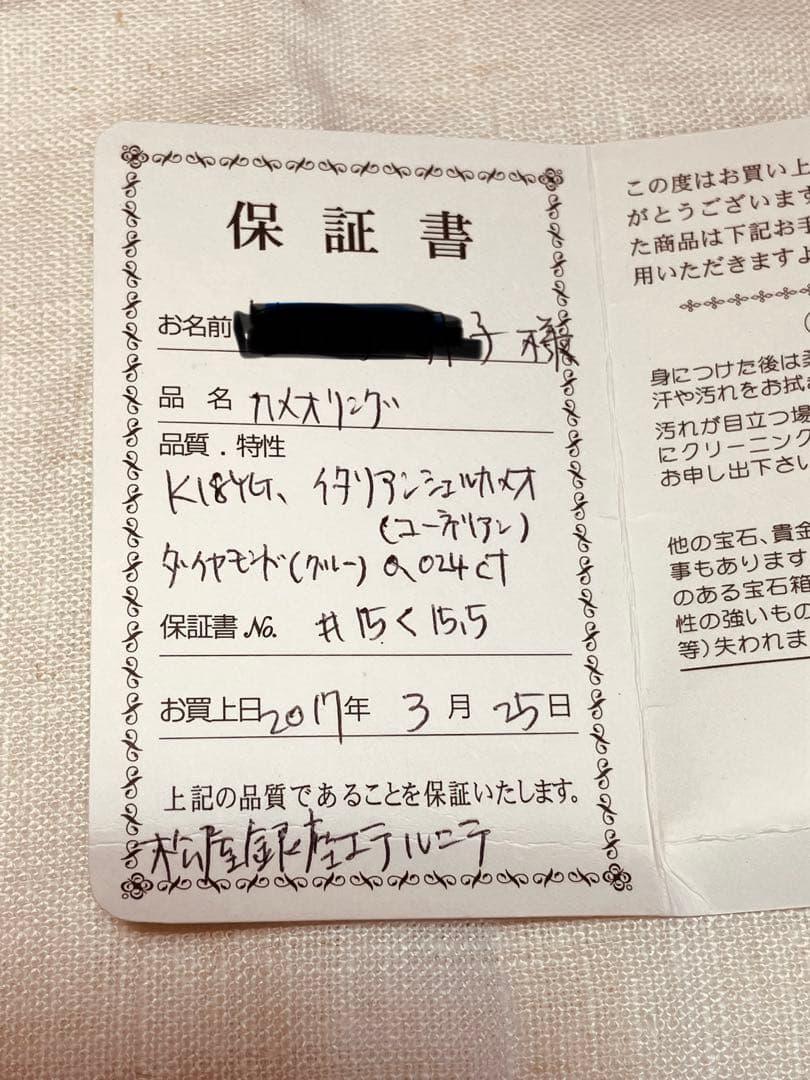 保証書
お名前 子 様
品 名 カメオリング
品質．特性
K18YG、イタリアンシェルカメオ
(コーネリアン)
ダイヤモンド(グレー) 0.024ct
保証書No. #15く15.5
お買上日 2017年 3月 25日
上記の品質であることを保証いたします。
松屋銀座エテルニテ
この度はお買い上
がとうございます
た商品は下記お手
用いただきますよ
身につけた後は柔
汗や汚れをお拭き
汚れが目立つ場
にクリーニング
お申し出下さい
他の宝石、貴金
事もあります
のある宝石箱
性の強いもの
等)失われま